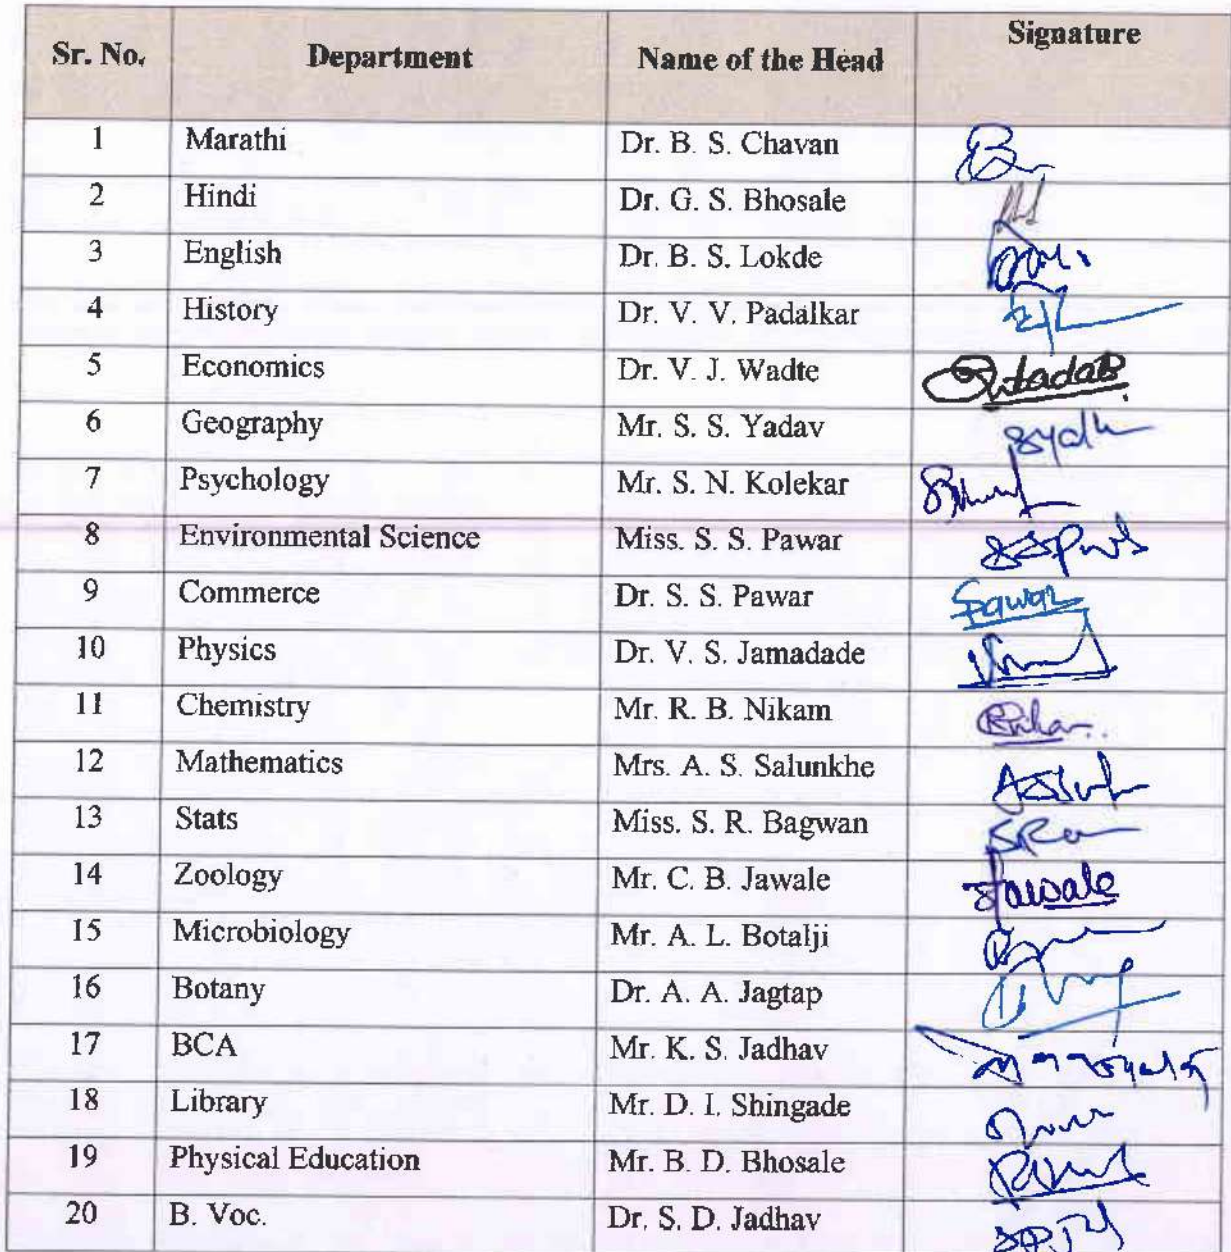 Sr. No. Department Name of the Head Signature
1 Marathi Dr. B. S. Chavan
2 Hindi Dr. G. S. Bhosale
3 English Dr. B. S. Lokde
4 History Dr. V. V. Padalkar
5 Economics Dr. V. J. Wadte
6 Geography Mr. S. S. Yadav
7 Psychology Mr. S. N. Kolekar
8 Environmental Science Miss. S. S. Pawar
9 Commerce Dr. S. S. Pawar Pawar
10 Physics Dr. V. S. Jamadade
11 Chemistry Mr. R. B. Nikam
12 Mathematics Mrs. A. S. Salunkhe
13 Stats Miss. S. R. Bagwan
14 Zoology Mr. C. B. Jawale Jawale
15 Microbiology Mr. A. L. Botalji
16 Botany Dr. A. A. Jagtap
17 BCA Mr. K. S. Jadhav
18 Library Mr. D. I. Shingade
19 Physical Education Mr. B. D. Bhosale
20 B. Voc. Dr. S. D. Jadhav